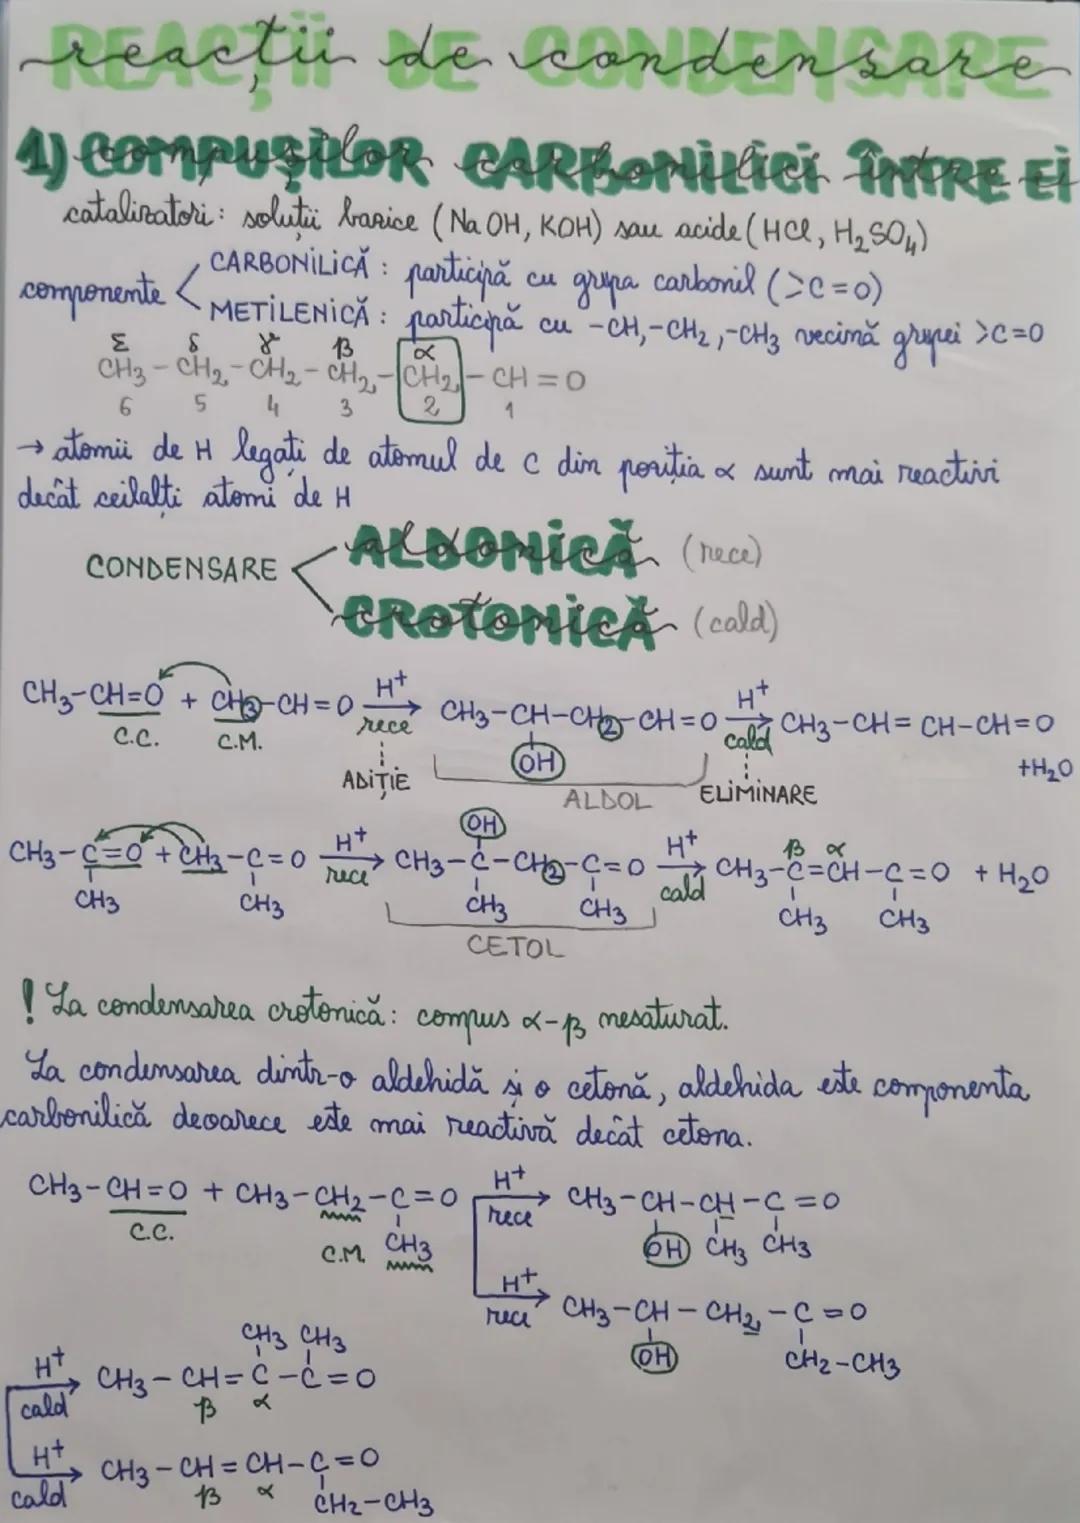 REACȚII DE CONDENSARE
1) COMPUȘILOR CARBONILICI ÎNTRE EI
catalizatori: soluții bazice (NaOH, KOH) sau acide (HCl, H₂SO₄)
componente
CARBONILICĂ: participă cu grupa carbonil (>C=O)
METILENICĂ: participă cu -CH, -CH₂, -CH₃ vecină grupei >C=O
Σ δ γ β α
CH₃-CH₂-CH₂-CH₂-CH₂-CH=O
6 5 4 3 2 1
→ atomii de H legați de atomul de C din poziția α sunt mai reactivi
decât ceilalți atomi de H
CONDENSARE
ALDONICĂ (rece)
CROTONICĂ (cald)
CH₃-CH=O + CH₃-CH=O H⁺ rece → CH₃-CH-CH₂-CH=O H⁺ cald → CH₃-CH=CH-CH=O
C.C. C.M. OH +H₂O
ADIȚIE ALDOL ELIMINARE
OH
CH₃-C=O + CH₃-C=O H⁺ rece → CH₃-C-CH₂-C=O H⁺ cald → CH₃-C=CH-C=O + H₂O
β α
CH₃ CH₃ CH₃ CH₃ CH₃ CH₃
CETOL
! La condensarea crotonică: compus α-β nesaturat.
La condensarea dintr-o aldehidă și o cetonă, aldehida este componenta
carbonilică deoarece este mai reactivă decât cetona.
CH₃-CH=O + CH₃-CH₂-C=O H⁺ rece → CH₃-CH-CH-C=O
C.C. C.M. CH₃ OH CH₃ CH₃
H⁺ rece → CH₃-CH-CH₂-C=O
OH CH₂-CH₃
CH₃ CH₃
H⁺ cald → CH₃-CH=C-C=O
β α
H⁺ cald → CH₃-CH=CH-C=O
β α CH₂-CH₃